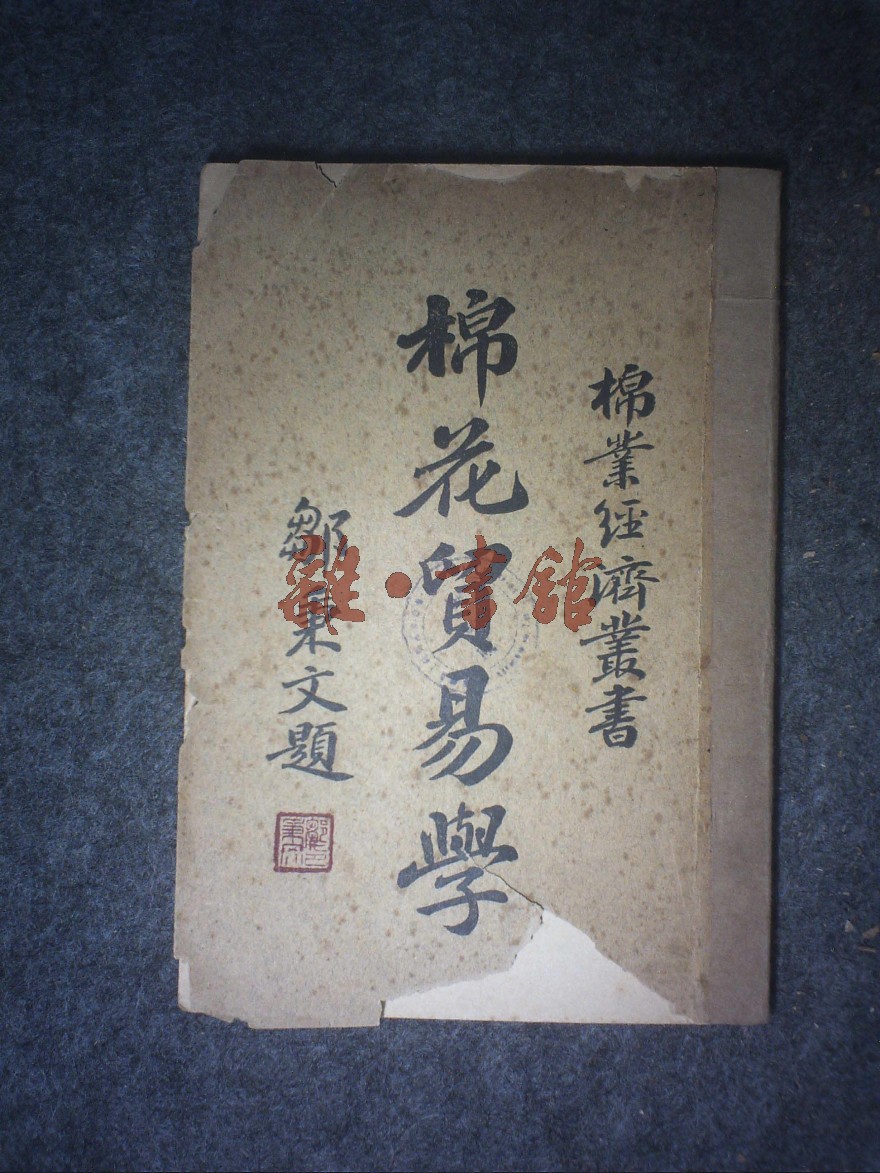 棉業經濟叢書
棉花貿易學
鄒秉文題
雜·書館